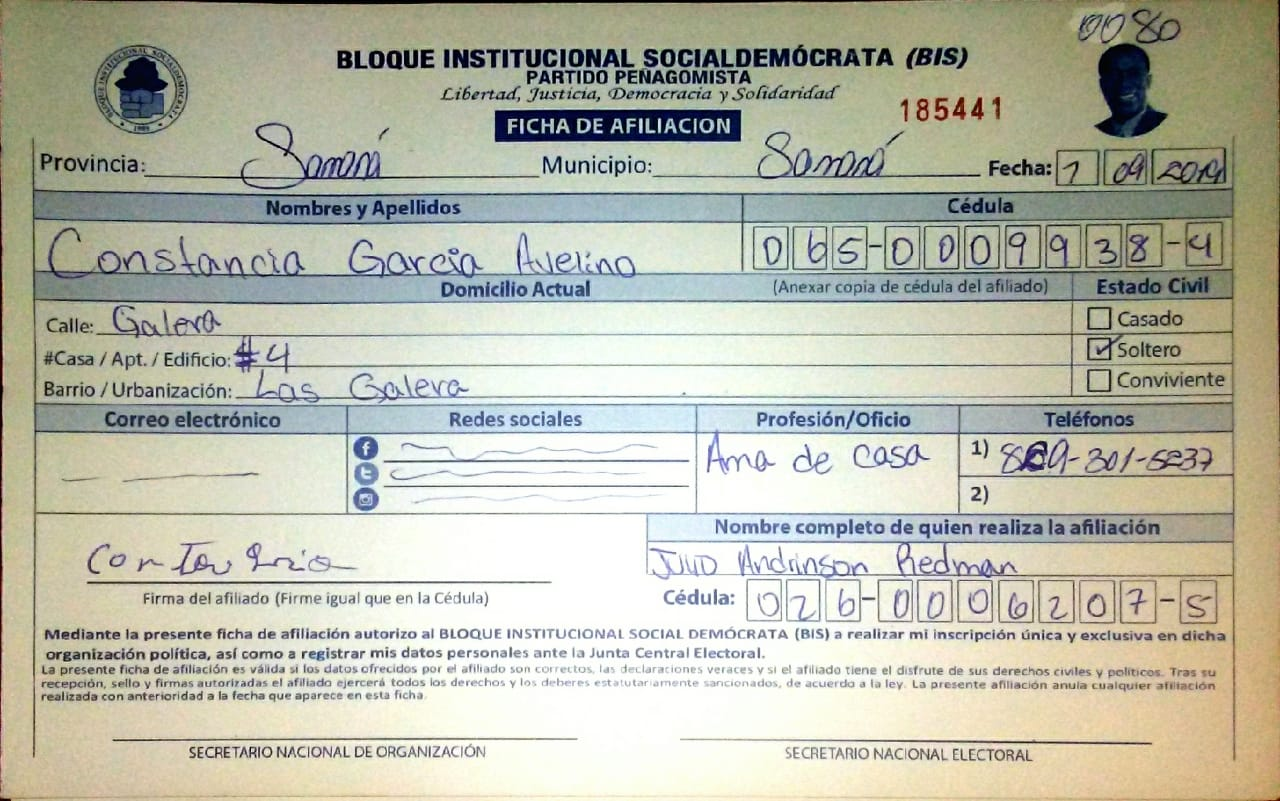 0080
BLOQUE INSTITUCIONAL SOCIALDEMÓCRATA (BIS)
PARTIDO PEÑAGOMISTA
Libertad, Justicia, Democracia y Solidaridad
185441
FICHA DE AFILIACION
Provincia: Samaná Municipio: Samaná Fecha: 1 09 2019
Nombres y Apellidos Cédula
Constancia Garcia Avelino 065-0009938-4
Domicilio Actual (Anexar copia de cédula del afiliado) Estado Civil
Calle: Galera Casado
#Casa / Apt. / Edificio: #4 Soltero
Barrio / Urbanización: Las Galera Conviviente
Correo electrónico Redes sociales Profesión/Oficio Teléfonos
Ama de casa 1) 829-301-5237
2)
Nombre completo de quien realiza la afiliación
Julio Andrinson Redman
Firma del afiliado (Firme igual que en la Cédula) Cédula: 026-0006207-5
Mediante la presente ficha de afiliación autorizo al BLOQUE INSTITUCIONAL SOCIAL DEMÓCRATA (BIS) a realizar mi inscripción única y exclusiva en dicha
organización política, así como a registrar mis datos personales ante la Junta Central Electoral.
La presente ficha de afiliación es válida si los datos ofrecidos por el afiliado son correctos, las declaraciones veraces y si el afiliado tiene el disfrute de sus derechos civiles y políticos. Tras su
recepción, sello y firmas autorizadas el afiliado ejercerá todos los derechos y los deberes estatutariamente sancionados, de acuerdo a la ley. La presente afiliación anula cualquier afiliación
realizada con anterioridad a la fecha que aparece en esta ficha.
SECRETARIO NACIONAL DE ORGANIZACIÓN SECRETARIO NACIONAL ELECTORAL